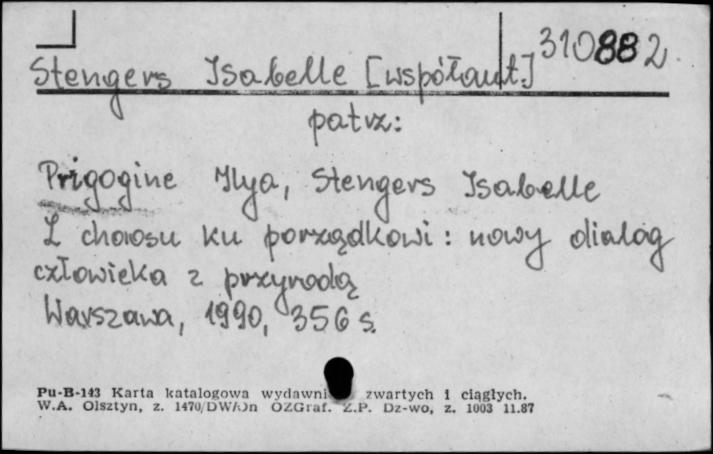 310882
Stengers Isabelle [współaut.]
patrz:
Prigogine Ilya, Stengers Isabelle
Z chaosu ku porządkowi : nowy dialog
człowieka z przyrodą
Warszawa, 1990, 356 s.
Pu-B-143 Karta katalogowa wydawni zwartych i ciągłych.
W.A. Olsztyn, z. 1470/DWA/On OZGraf. Z.P. Dz-wo, z. 1003 11.87